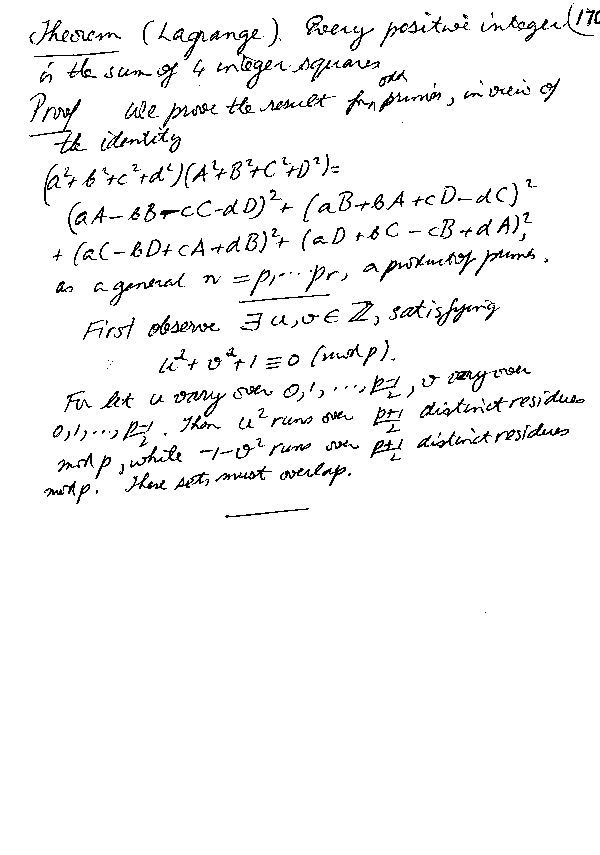 Theorem (Lagrange). Every positive integer (170
is the sum of 4 integer squares
Proof We prove the result for odd primes, in view of
the identity
(a²+b²+c²+d²)(A²+B²+C²+D²)=
(aA-bB-cC-dD)²+(aB+bA+cD-dC)²
+(aC-bD+cA+dB)²+(aD+bC-cB+dA)²,
as a general n = p₁...pᵣ, a product of primes.
First observe ∃ u, v ∈ ℤ, satisfying
u²+v²+1≡0 (mod p).
For let u vary over 0,1,...,p-1/2, v vary over
0,1,...,p-1/2. Then u² runs over p+1/2 distinct residues
mod p, while -1-v² runs over p+1/2 distinct residues
mod p. These sets must overlap.